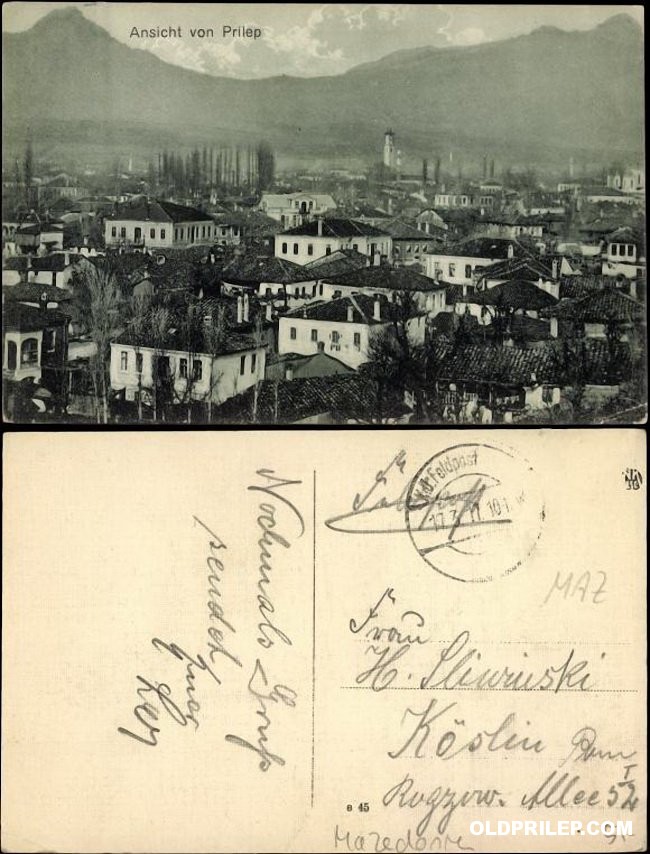 Ansicht von Prilep
Nochmals Gruß
sendet
Euer
Feldpost
K.D. Feldpost
17.3.17. 10
MAZ
Frau
H. Sliwinski
Köslin Pom
Rogzow. Allee 52
I
e 45
Mazedonien
OLDPRILEP.COM